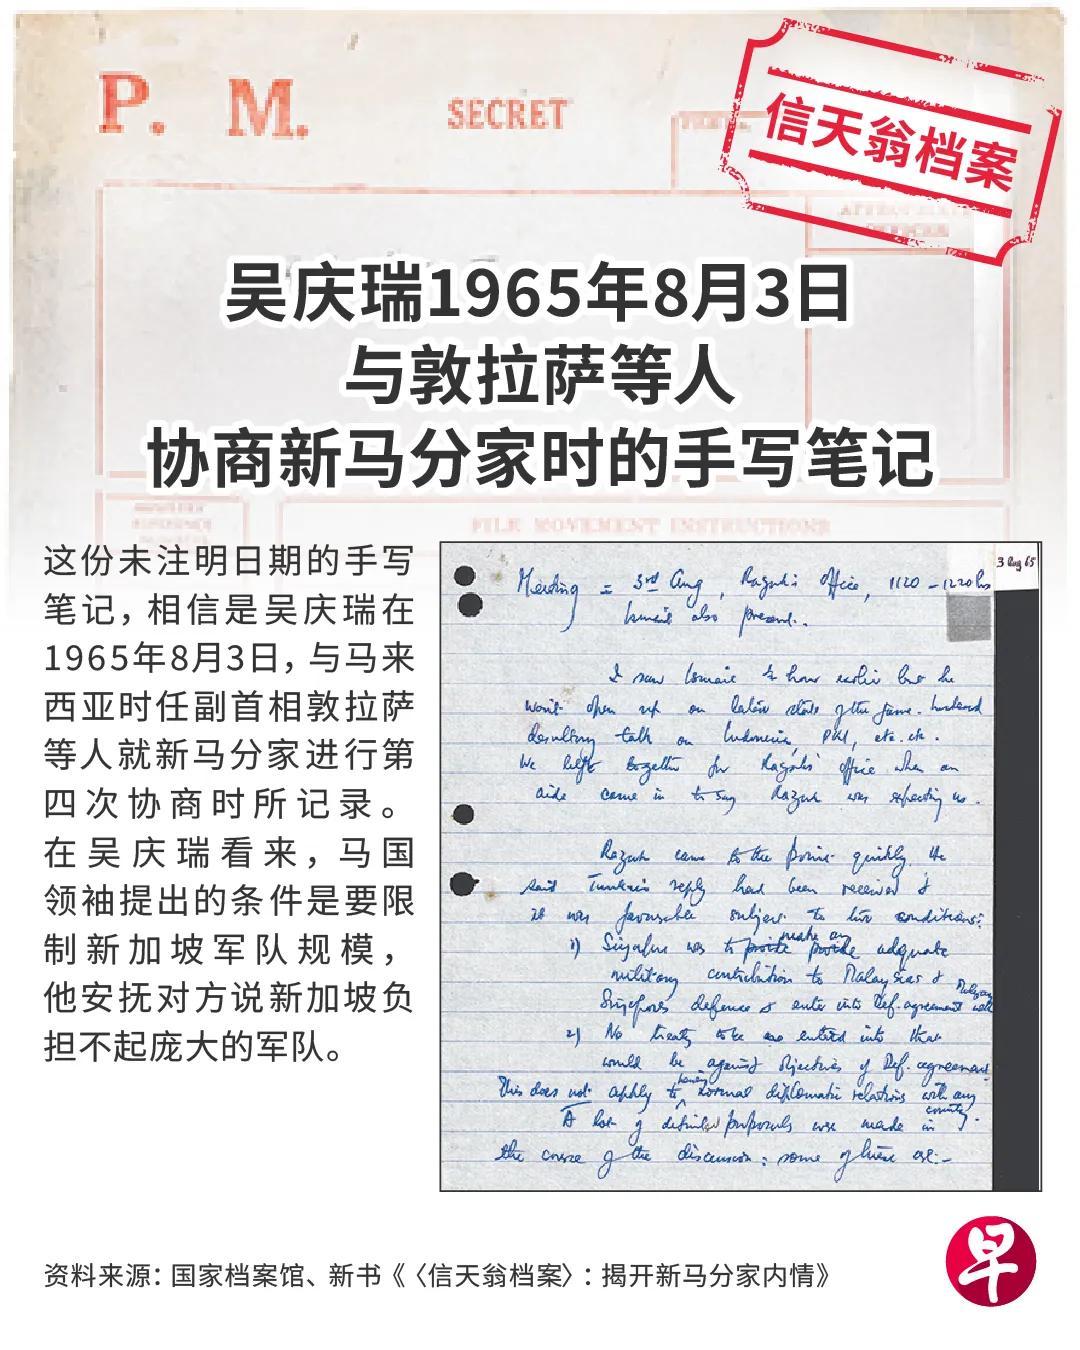 P. M.
SECRET
信天翁档案
吴庆瑞1965年8月3日
与敦拉萨等人
协商新马分家时的手写笔记
FILE MOVEMENT INSTRUCTIONS
这份未注明日期的手写
笔记，相信是吴庆瑞在
1965年8月3日，与马来
西亚时任副首相敦拉萨
等人就新马分家进行第
四次协商时所记录。
在吴庆瑞看来，马国
领袖提出的条件是要限
制新加坡军队规模，
他安抚对方说新加坡负
担不起庞大的军队。
3 Aug 65
Meeting = 3rd Aug, Razak's office, 1120 - 1220 hrs
Ismail also present.
I saw Ismail ½ hour earlier but he
won't open up on latest state of the game.
desultory talk on Indonesia, PKI, etc. etc.
We left together for Razak's office when an
aide came in to say Razak was expecting us.
Razak came to the point quickly. He
said Tunku's reply had been received &
it was favourable subject to two conditions:
1) Singapore was to make an adequate
military contribution to Malaysia's &
Singapore's defence & enter into Def. agreement with Malaysia
2) No treaty to be entered into that
would be against objectives of Def. agreement.
This does not apply to having normal diplomatic relations with any
country.
A lot of detailed proposals were made in
the course of the discussion; some of these are:-
资料来源：国家档案馆、新书《〈信天翁档案〉：揭开新马分家内情》
早